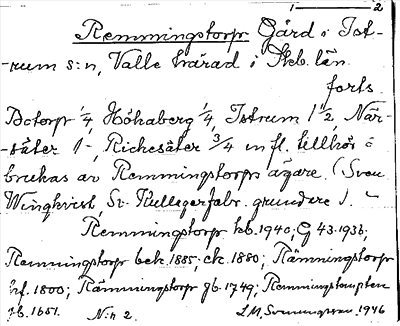 1 — 2
Remmingstorps Gård i Ist-
-rum s:n, Valle härad i Skb. län.
forts.
Botorp 1/4, Höhaberg 1/4, Istrum 1 1/2, När-
-säter 1-, Richesäter 3/4 m fl. tillhör o
brukas av Remmingstorps ägare. (Sven
Wingkvist, Sv. Kullagerfabr. grundare).
Remmingstorp kb. 1940; G 43. 1936;
Remmingstorp bek. 1885; ek. 1880; Rämmingstorp
hf. 1800; Rämmingstorp gb. 1749;
jb. 1651. N:r 2. L.M. Svenungsson 1946